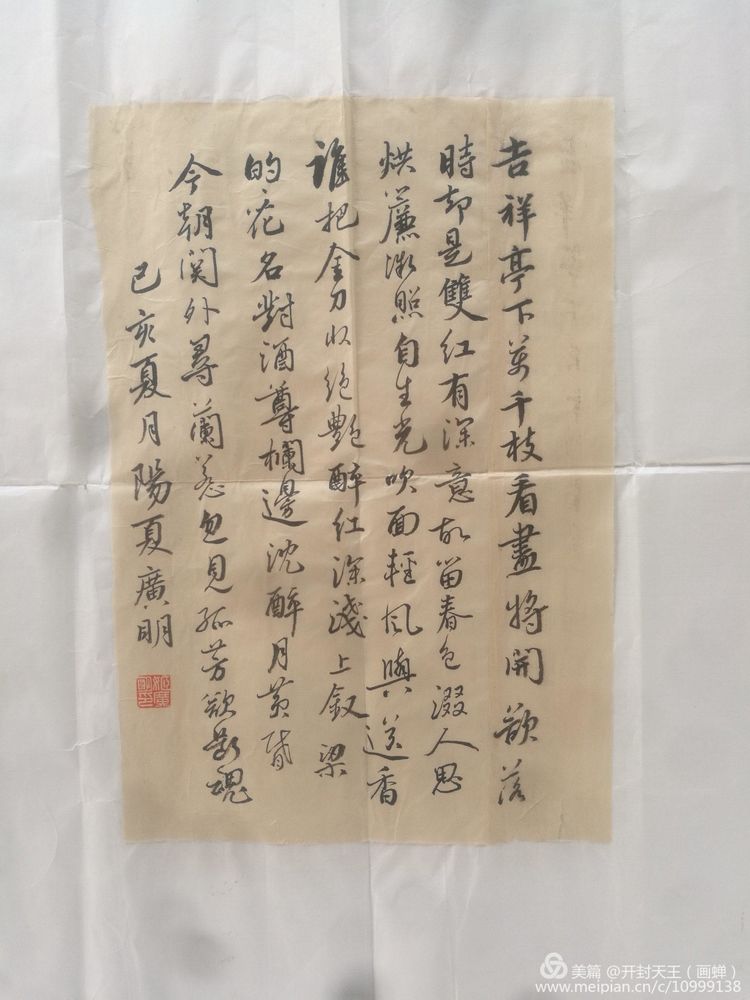 吉祥亭下萬千枝看盡將開欲落
時却是雙紅有深意故留春色綴人思
烘簾漱照自生光吹面輕風與送香
誰把金刀收絕艷醉紅深淺上釵梁
的的花名對酒尊欄邊沈醉月黄昏
今朝關外尋蘭蕙忽見孤芳欲斷魂
己亥夏月陽夏廣明
美篇 @开封天王（画蝉）
www.meipian.cn/c/10999138